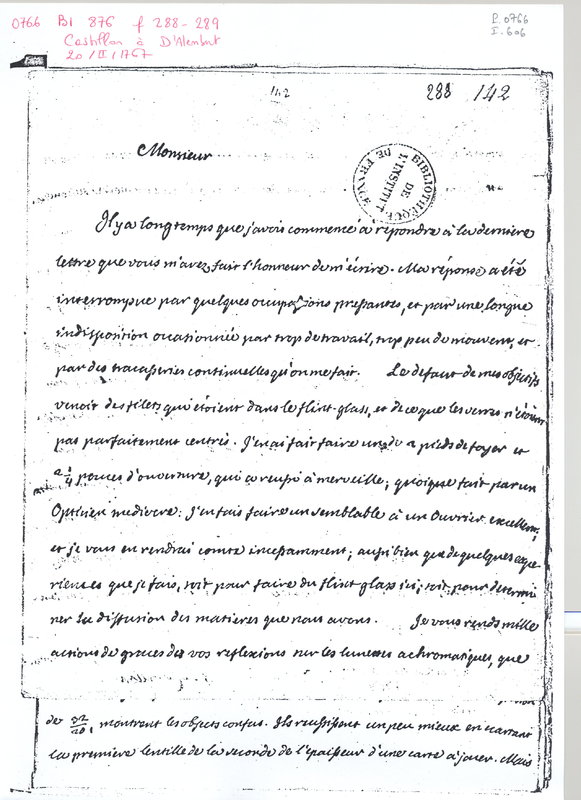 0766 BI 876 f 288-289
Castillon à D'Alembert
20/II/1767
P. 0766
I. 606
142
288 142
BIBLIOTHEQUE DE L'INSTITUT DE FRANCE
Monsieur
Il y a longtemps que j'avois commencé à repondre à la derniere
lettre que vous m'avez fait l'honneur de m'écrire. Ma réponse a été
interrompue par quelques occupations pressantes, et par une longue
indisposition occationnée par trop de travail, trop peu de mouvem.t, et
par des tracasseries continuelles qu'on me fait. Le defaut de mes objectifs
venoit des filets qui étoient dans le flint-glass, et de ce que les verres n'étoient
pas parfaitement centrés. J'en ai fait faire un de 2 pieds de foyer et
pouces d'ouverture, qui a reussi à merveille; quoique fait par un
Opticien mediocre. J'en fais faire un semblable à un Ouvrier excellent,
et je vous en rendrai comte incessamment; aussi bien que de quelques expe-
riences que je fais, soit pour faire du flint-glass ici; soit pour determi-
ner la diffusion des matieres que nous avons. Je vous rends mille
actions de graces de vos reflexions sur les lunettes achromatiques, que
de 32/20, montrent les objets confus. Ils reussissent un peu mieux en ecartant
la premiere lentille de la seconde de l'épaisseur d'une carte à jouer. Mais